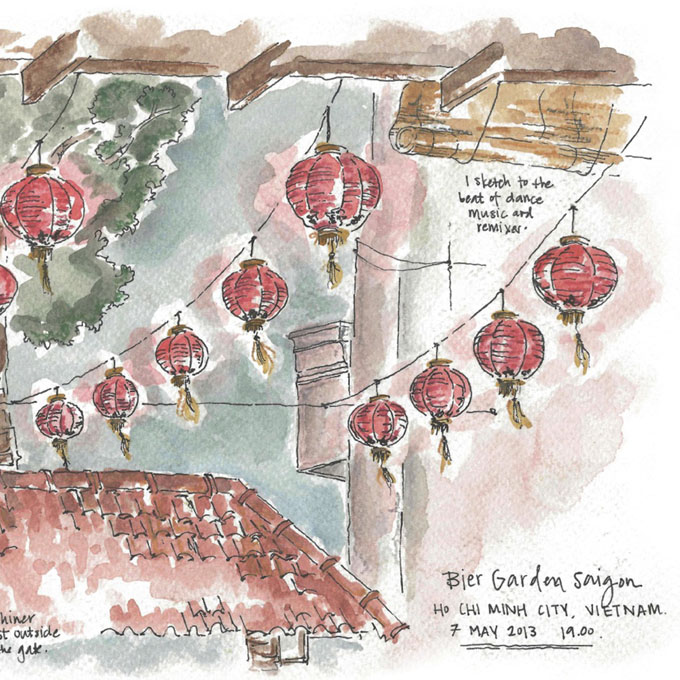 I sketch to the
beat of dance
music and
remixes.
Bier Garden Saigon
HO CHI MINH CITY, VIETNAM.
7 MAY 2013 19.00.
hiner
st outside
the gate.